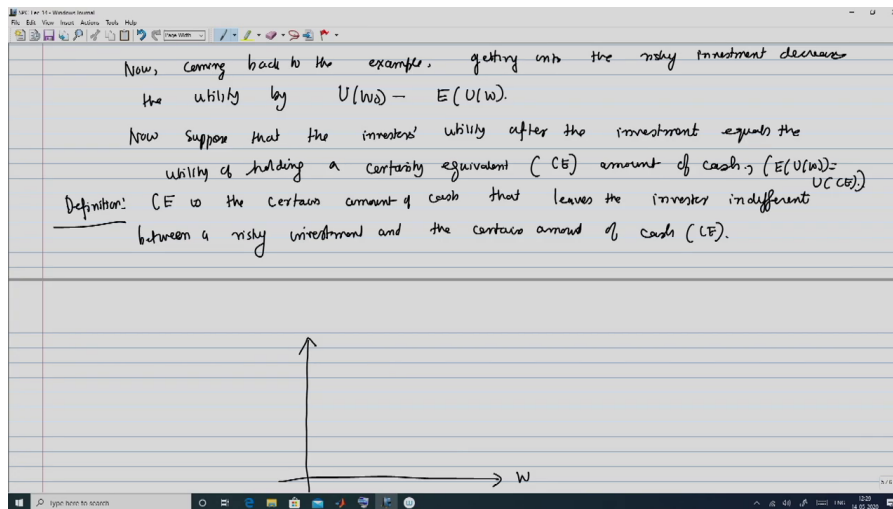 NPC Lec 14 - Windows Journal
File Edit View Insert Actions Tools Help
Page Width
Now, coming back to the example, getting into the risky investment decreases
the utility by U(W0) - E(U(W).
Now suppose that the investors' utility after the investment equals the
utility of holding a certainty equivalent (CE) amount of cash, (E(U(W))=
U(CE).)
Definition: CE is the certain amount of cash that leaves the investor indifferent
between a risky investment and the certain amount of cash (CE).
W
5/6
Type here to search
ENG
12:29
14-05-2020